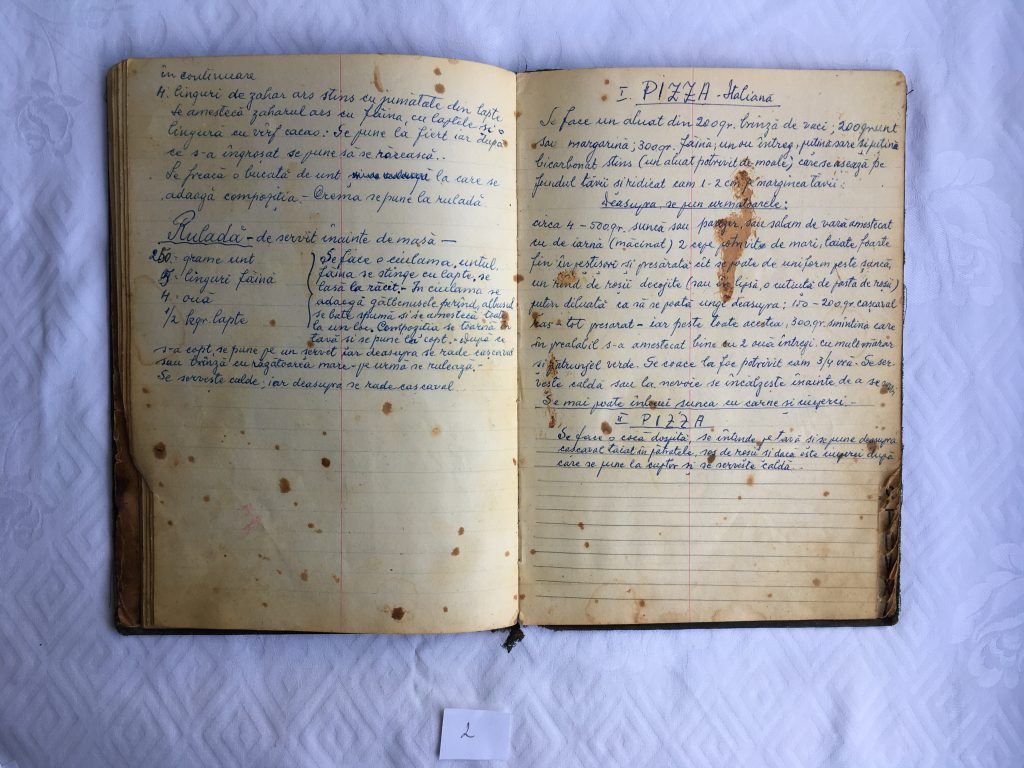 în continuare
4. linguri de zahar ars stins cu jumătate din lapte
se amestecă zaharul ars cu făina, cu laptele și o
lingură cu vîrf cacao. Se pune la fiert iar după
ce s-a îngroșat se pune să se răcească..
Se freacă o bucată de unt la care se
adaogă compoziția - Crema se pune la ruladă
Ruladă - de servit înainte de masă -
250 - grame unt
5 - linguri făină
4 - ouă
1/2 kgr. lapte
Se face o ciulama, untul,
făina se stinge cu lapte, se
lasă la răcit. - In ciulama se
adaogă gălbenușele pe rînd, albușul
se bate spumă și se amestecă toate
la un loc. Compoziția se toarnă în
tavă și se pune la copt. - După ce
s-a copt, se pune pe un servet iar deasupra se rade cașcaval
sau brînză cu răzătoarea mare - pe urmă se rulează. -
Se servește calde, iar deasupra se rade cașcaval.
I. PIZZA - Italiană
Se face un aluat din 200gr. brînză de vaci; 200gr unt
sau margarină; 300gr. făină; un ou întreg, puțină sare și puțină
bicarbonat stins (un aluat potrivit de moale) care se așează pe
fundul tăvii și ridicat cam 1-2 cm pe marginea tăvii:
Deasupra, se pun urmatoarele:
circa 4 - 500gr. șuncă sau sau salam de vară amestecat
cu de iarnă (măcinat) 2 cepe potrivite de mari, taiate foarte
fin în peștișori și presărată cît se poate de uniform peste șuncă
un rînd de roșii decojite (sau în lipsă, o cutiuță de pastă de roșii)
puțin diluată ca să se poată unge deasupra; 150-200gr. cașcaval
ras tot presarat - iar peste toate acestea, 300gr. smîntînă care
în prealabil s-a amestecat bine cu 2 ouă întregi cu mult mărar
și pătrunjel verde. Se coace la foc potrivit cam 3/4 oră. Se ser-
vește caldă sau la nevoie se încălzește înainte de a se
Se mai poate înlocui șunca cu carne și ciuperci. -
II PIZZA
Se face o cocă dospită, se întinde pe tavă și se pune deasupra
cașcaval taiat în sos de roșii și dacă este ciuperci după
care se pune la cuptor și se servește caldă.
2